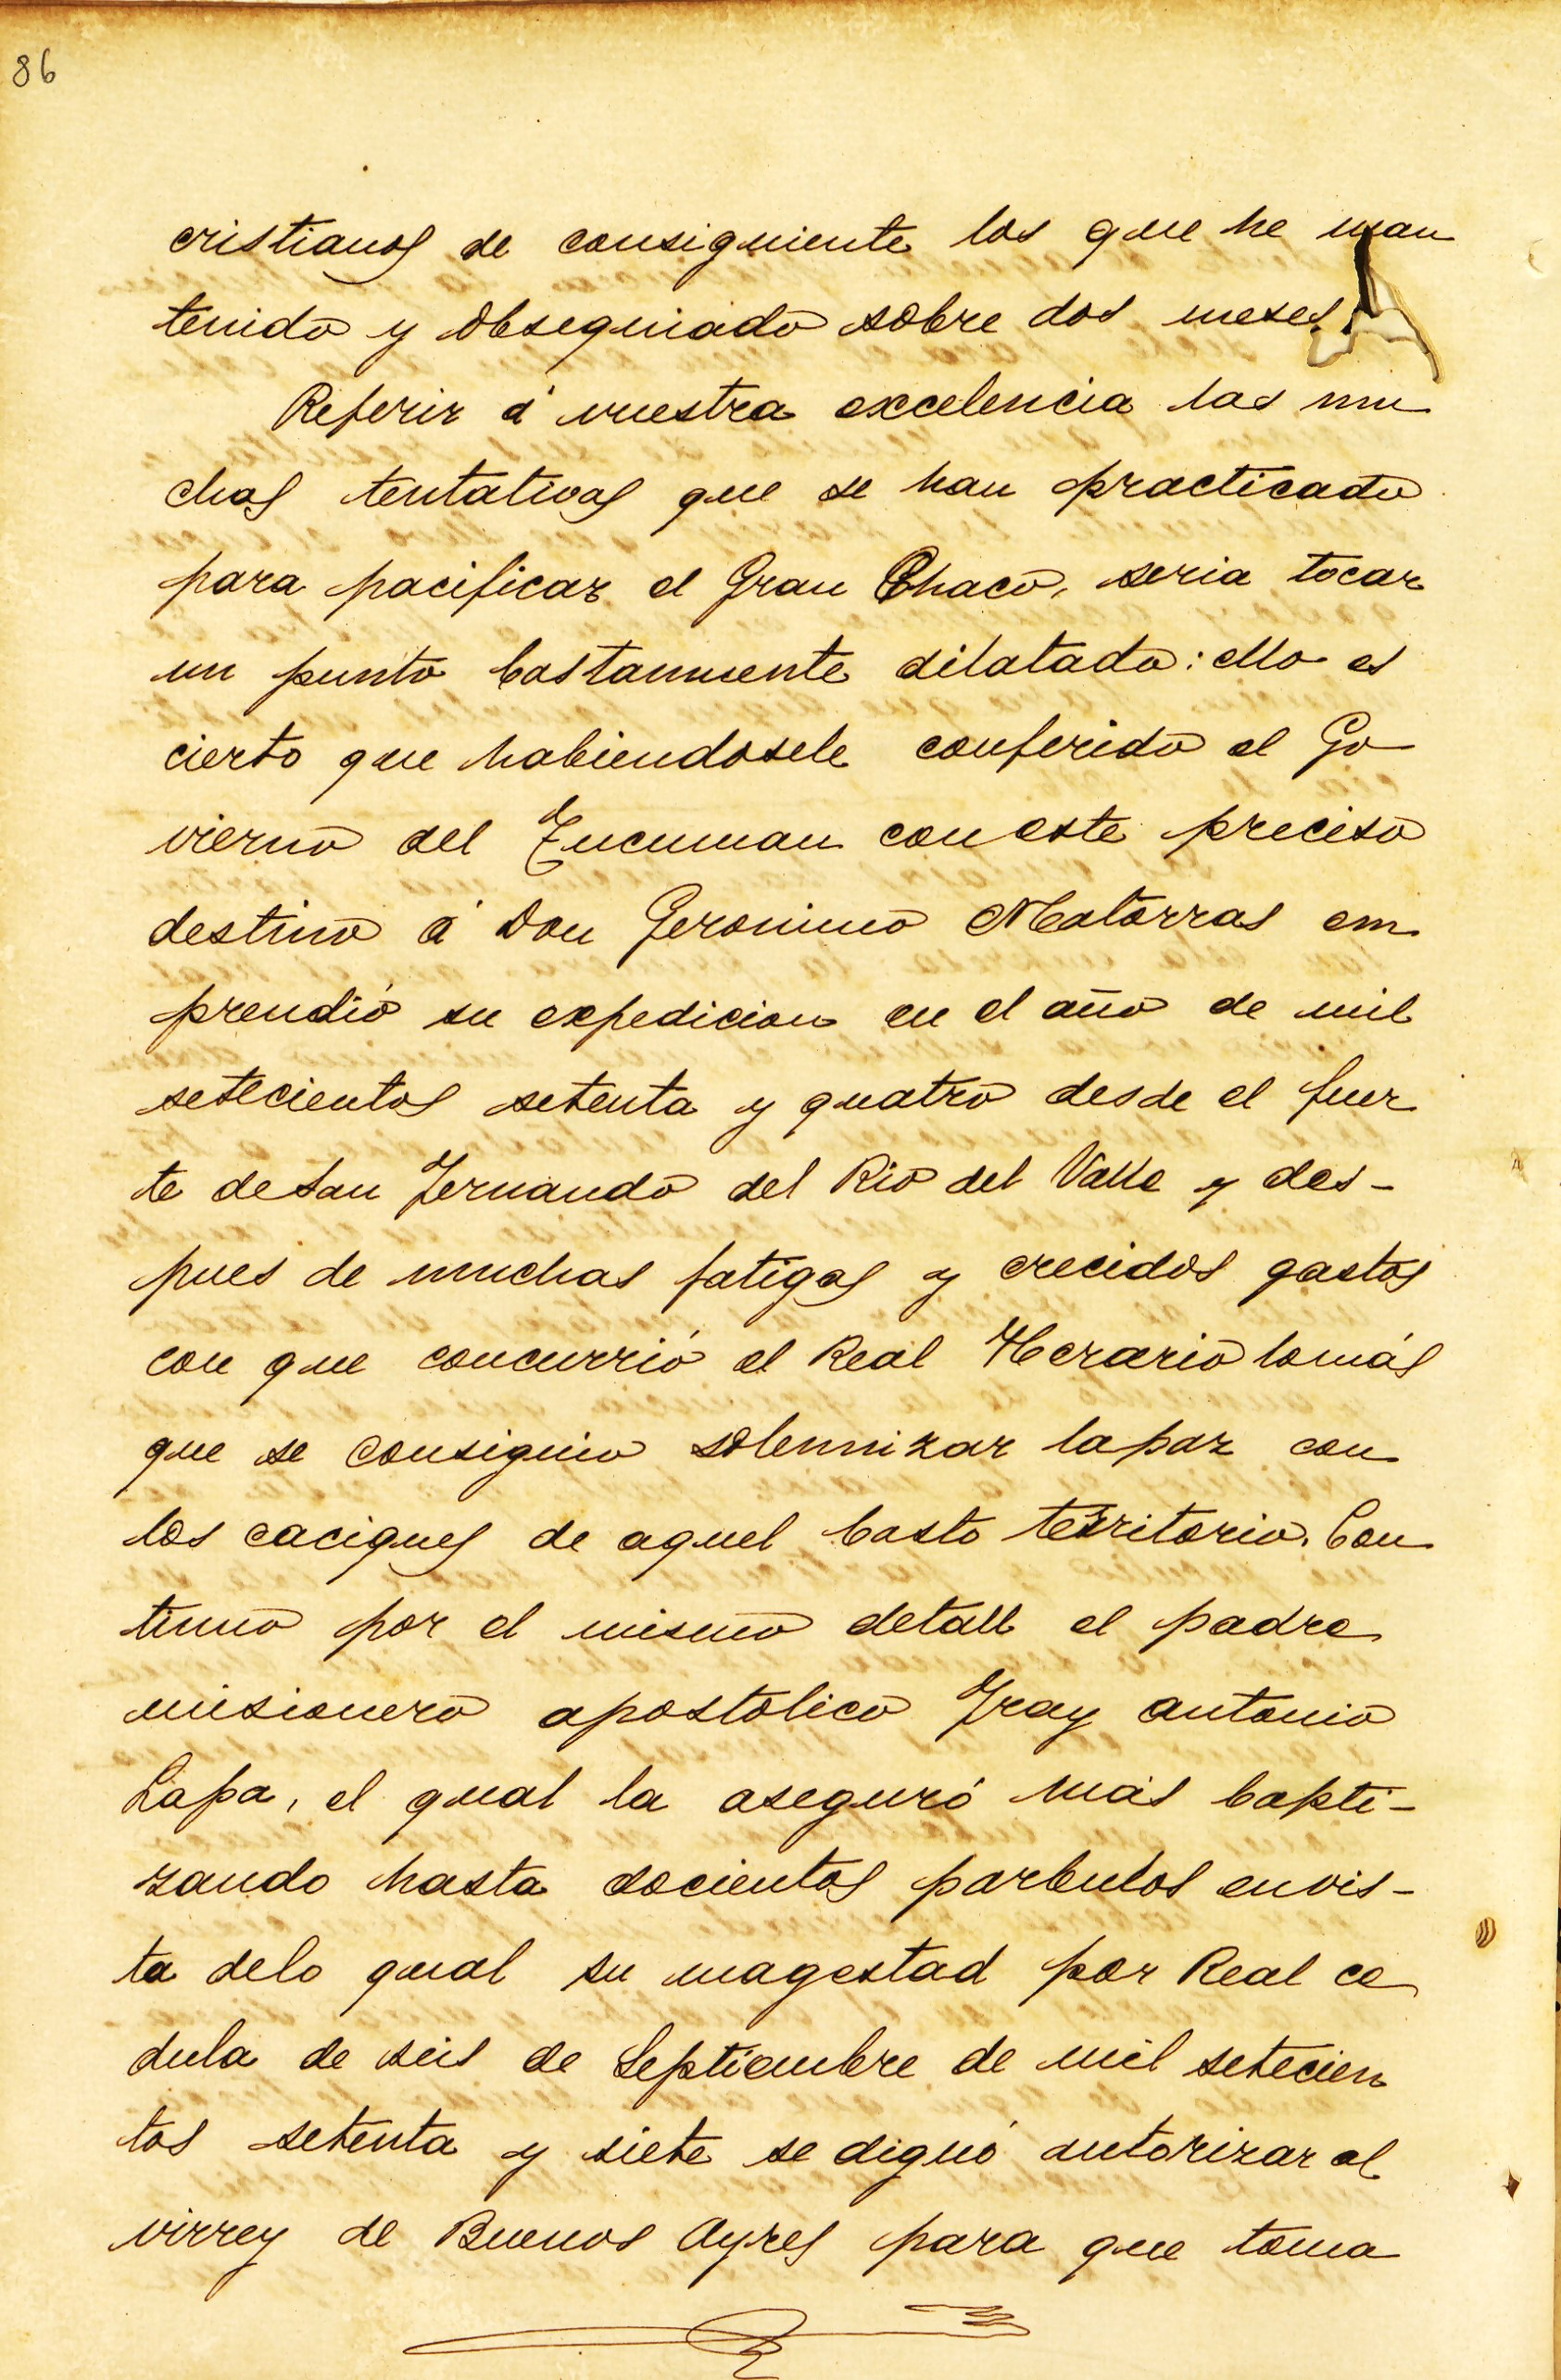 86
cristianos de consiguiente los que he man
tenido y obsequiado sobre dos meses.
Referir á vuestra excelencia las mu
chas tentativas que se han practicado
para pacificar el Gran Chaco, seria tocar
un punto bastamente dilatado: ello es
cierto que habiendosele conferido el Go
vierno del Tucuman con este preciso
destino á Don Geronimo Matorras em
prendió su expedicion en el año de mil
setecientos setenta y quatro desde el fuer
te de San Fernando del Rio del Valle y des-
pues de muchas fatigas y crecidos gastos
con que concurrió el Real Herario lo más
que se consiguio solemnizar la paz con
los caciques de aquel basto territorio. Con
tinuo por el mismo detall el padre
misionero apostolico Fray Antonio
Lapa, el qual la aseguró más bapti-
zando hasta docientos parbulos en vis-
ta delo qual su magestad por Real ce
dula de seis de Septiembre de mil setecien
tos setenta y siete se dignó autorizar al
virrey de Buenos Ayres para que toma